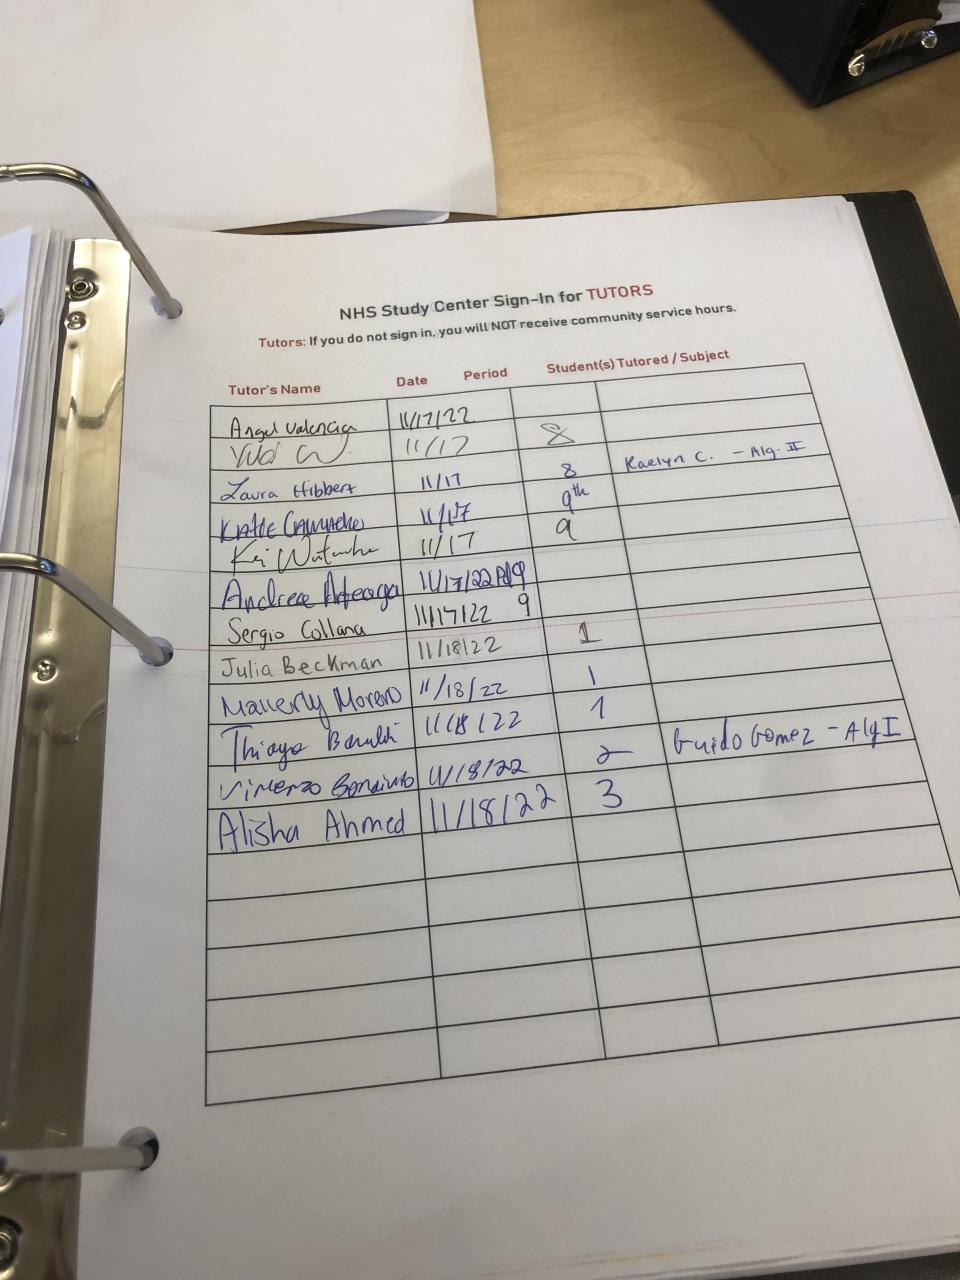 NHS Study Center Sign-In for TUTORS
Tutors: If you do not sign in, you will NOT receive community service hours.
Tutor's Name Date Period Student(s) Tutored / Subject
Angel Valencia 11/17/22
11/17 8
Laura Hibbert 11/17 8 Kaelyn C. - Alg. II
11/17 9th
Kei 11/17 9
Andrea Arteaga 11/17/22 Pd 9
Sergio Collana 11/17/22 9
Julia Beckman 11/18/22 1
Maverly Moreno 11/18/22 1
Thiago 11/18/22 1
11/18/22 2 Guido Gomez - Alg I
Alisha Ahmed 11/18/22 3